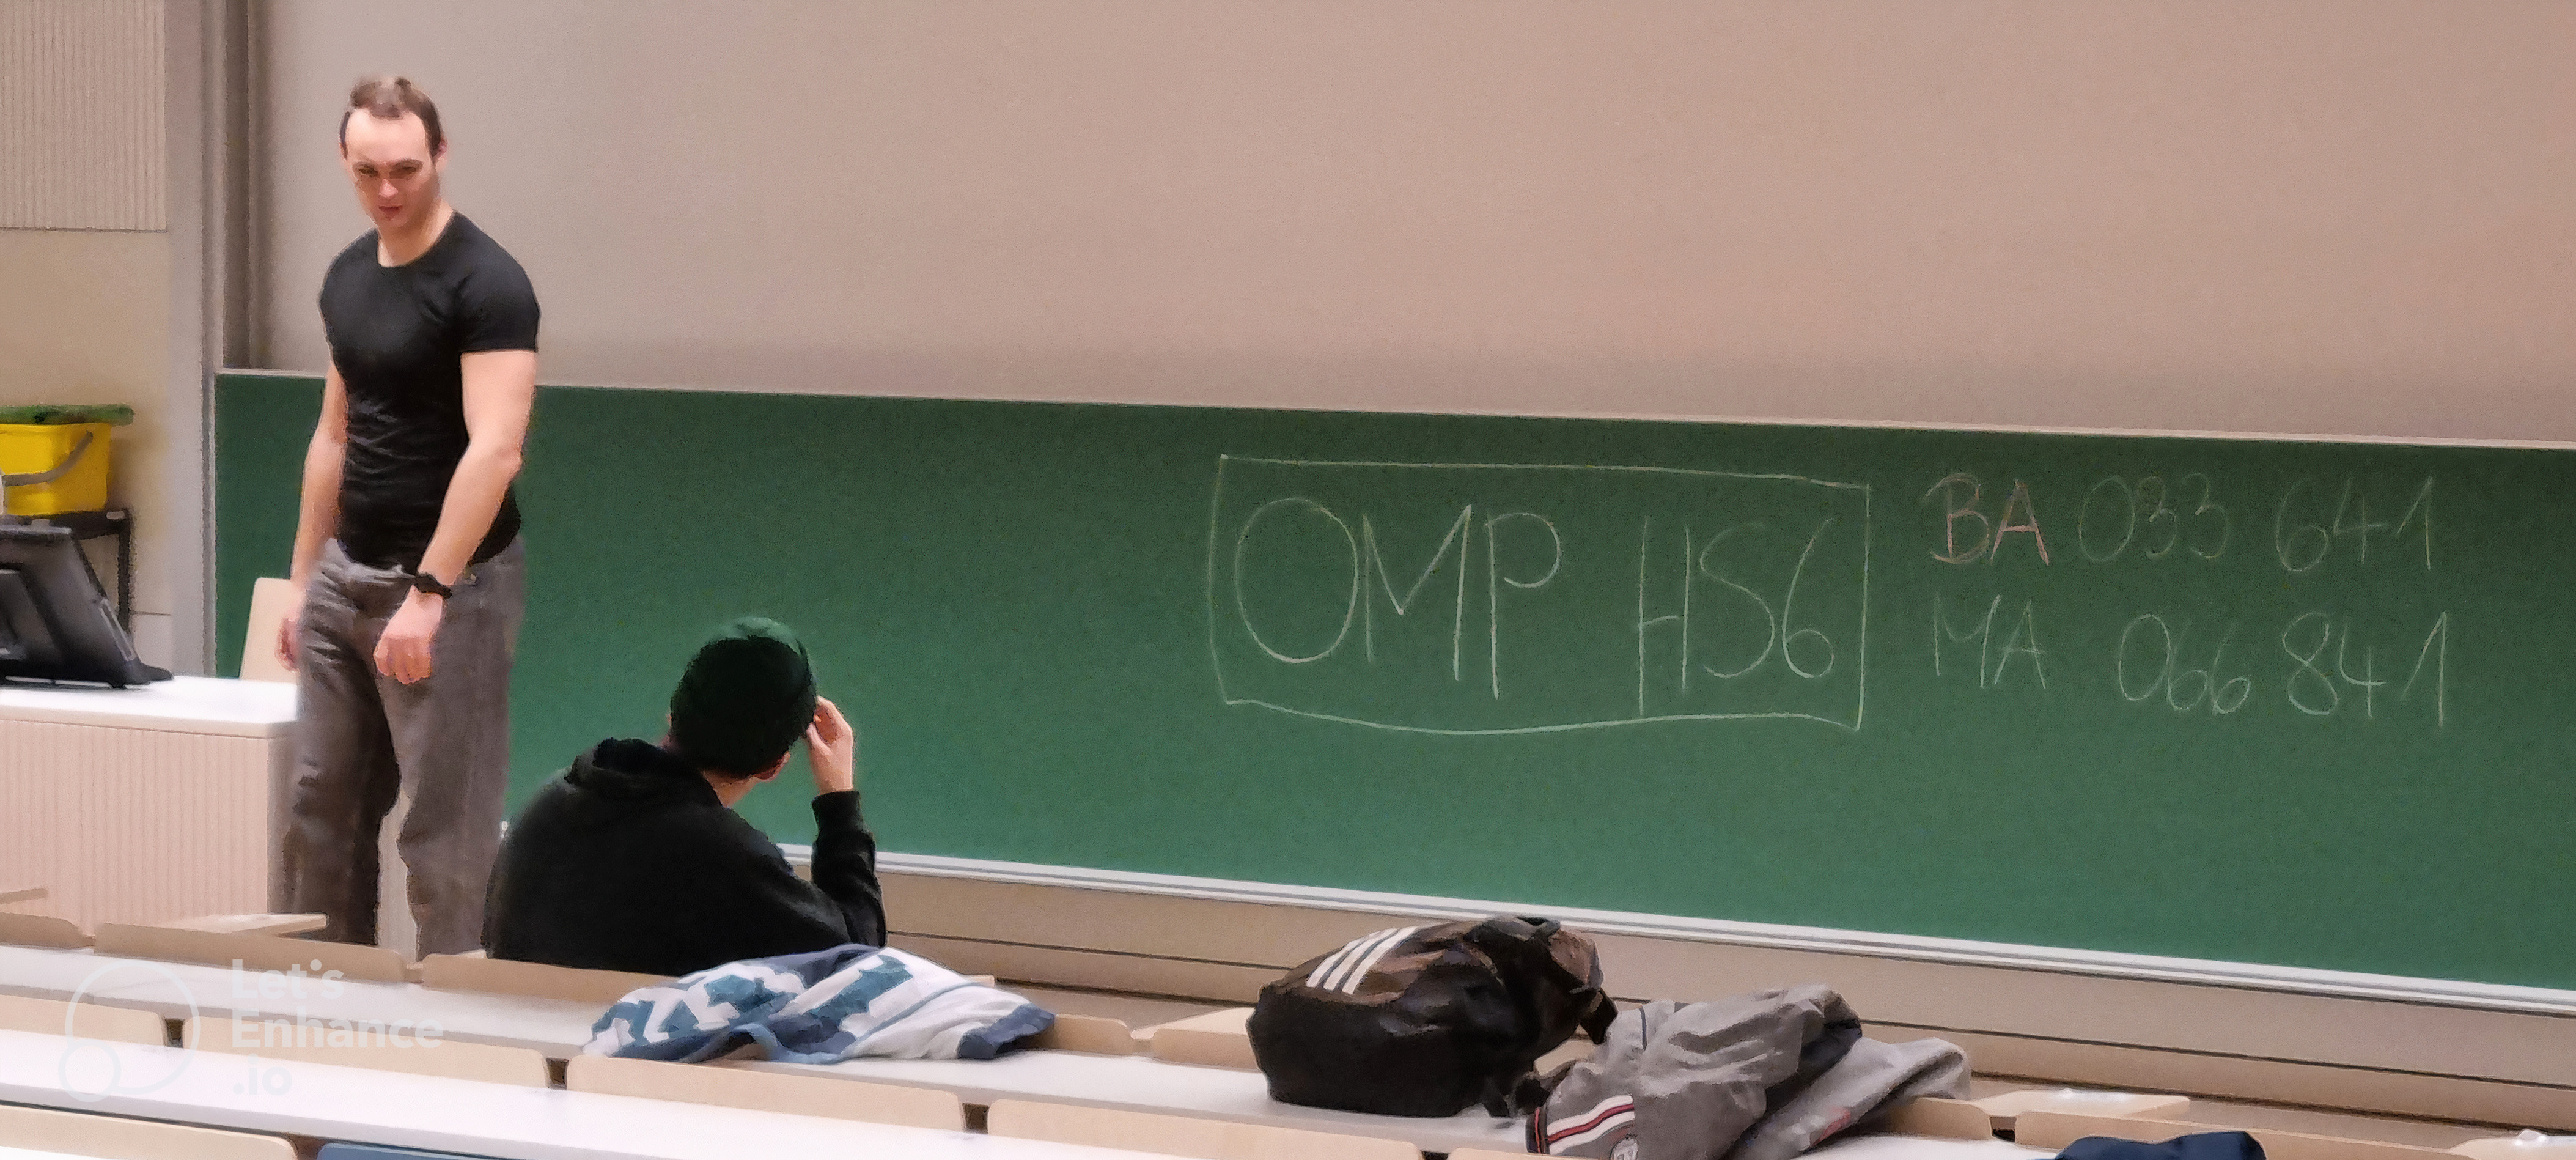 OMP HS6
BA 033 641
MA 066 841
Let's
Enhance
.io